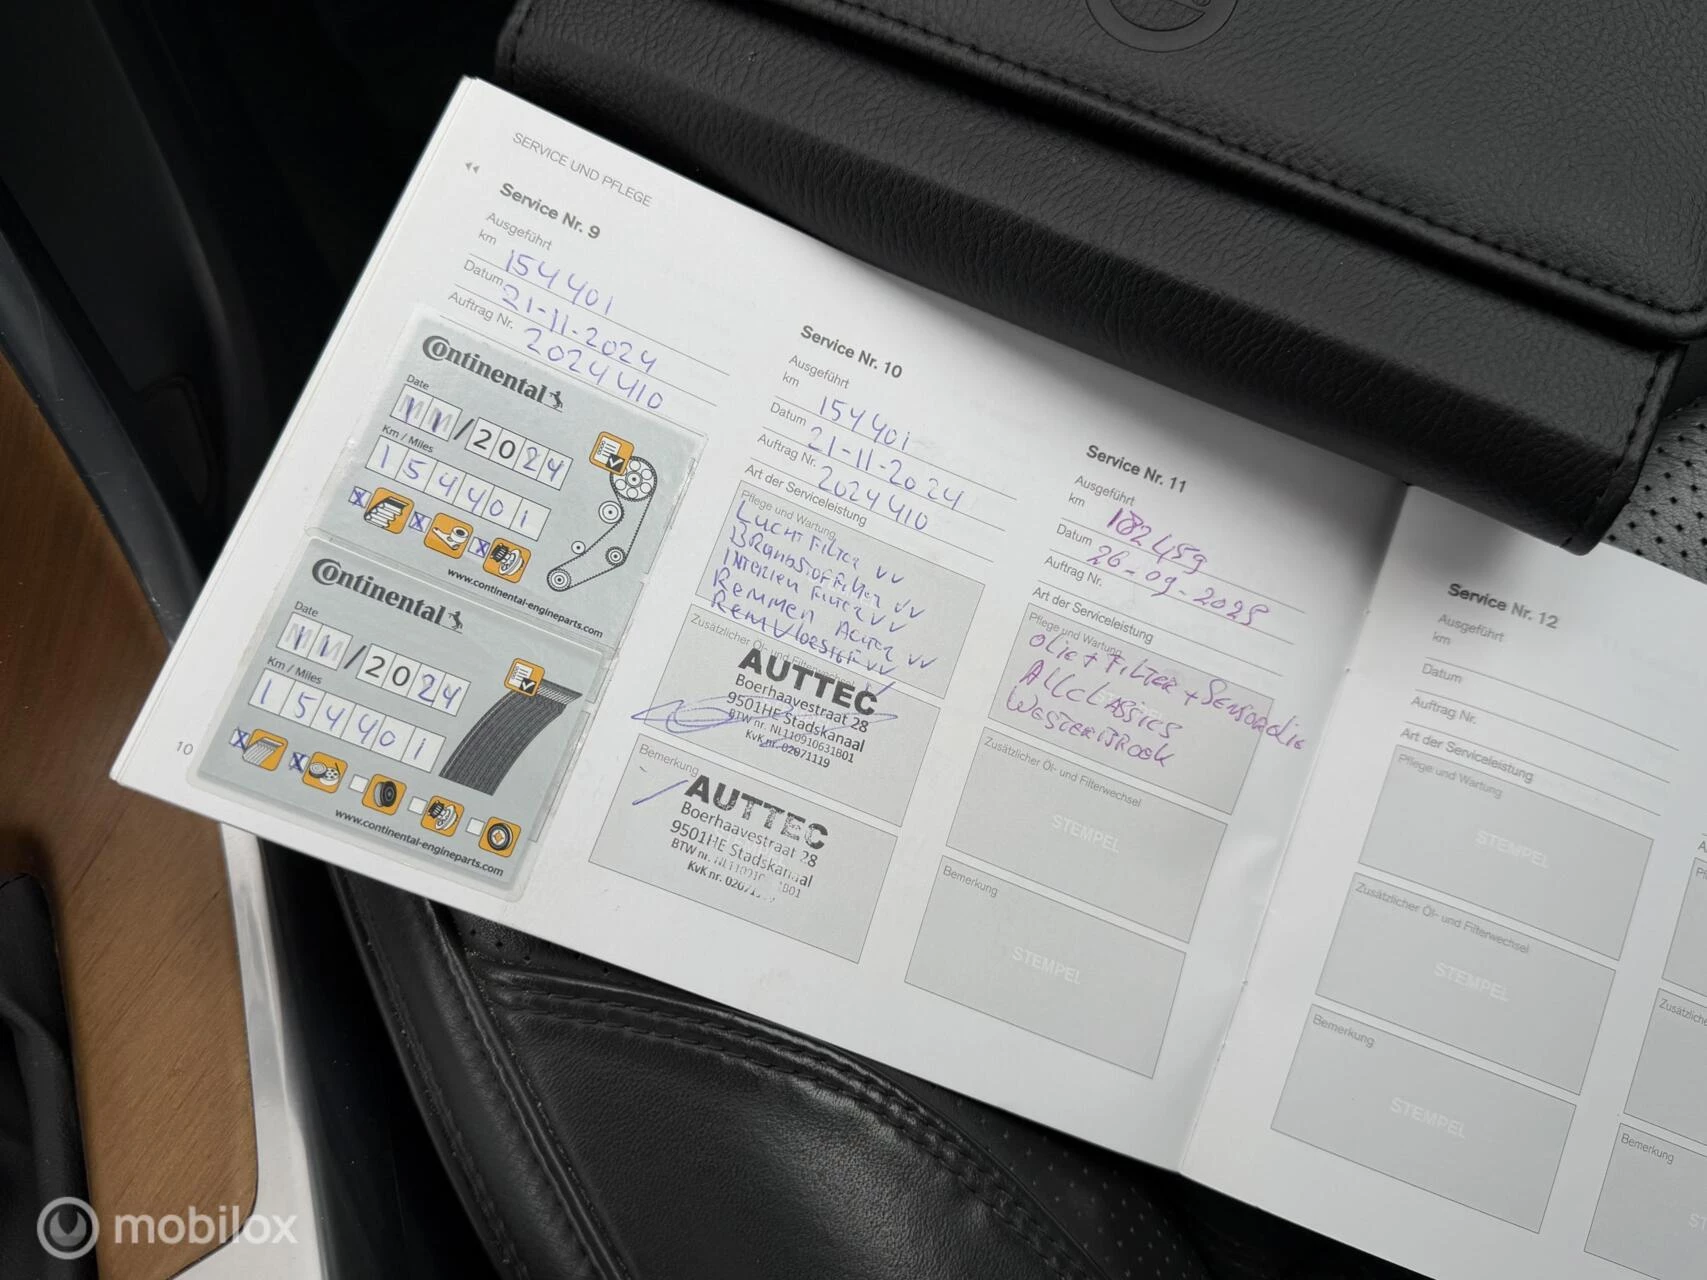 SERVICE UND PFLEGE
Service Nr. 9
Ausgeführt
km 154401
Datum 21-11-2024
Auftrag Nr. 2024410
Continental
Date
11/2024
Km / Miles
154401
X X X
www.continental-engineparts.com
Continental
Date
11/2024
Km / Miles
154401
X X
www.continental-engineparts.com
10
Service Nr. 10
Ausgeführt
km 154401
Datum 21-11-2024
Auftrag Nr. 2024410
Art der Serviceleistung
Pflege und Wartung
Lucht Filter VV
Brandstof Filter VV
Interieur Filter VV
Remmen Achter VV
Remvloeistof VV
Zusätzlicher Öl- und Filterwechsel
AUTTEC
Boerhaavestraat 28
9501HE Stadskanaal
BTW nr. NL110910631B01
KvK nr. 02071119
Bemerkung
AUTTEC
Boerhaavestraat 28
9501HE Stadskanaal
BTW nr.
KvK nr.
Service Nr. 11
Ausgeführt
km 182459
Datum 26-09-2025
Auftrag Nr.
Art der Serviceleistung
Pflege und Wartung
Olie + Filter +
All Classics
Westerbroek
Zusätzlicher Öl- und Filterwechsel
STEMPEL
Bemerkung
STEMPEL
Service Nr. 12
Ausgeführt
km
Datum
Auftrag Nr.
Art der Serviceleistung
Pflege und Wartung
STEMPEL
Zusätzlicher Öl- und Filterwechsel
STEMPEL
Bemerkung
STEMPEL
Bemerkung
mobilox